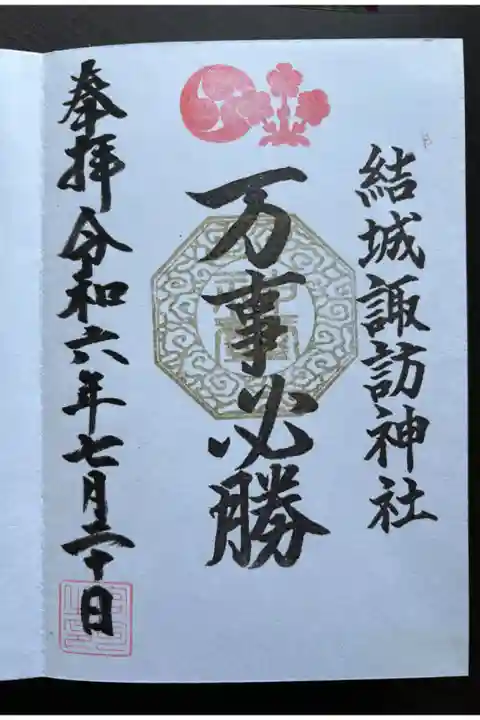 結城諏訪神社
万事必勝
奉拝令和六年七月二十日